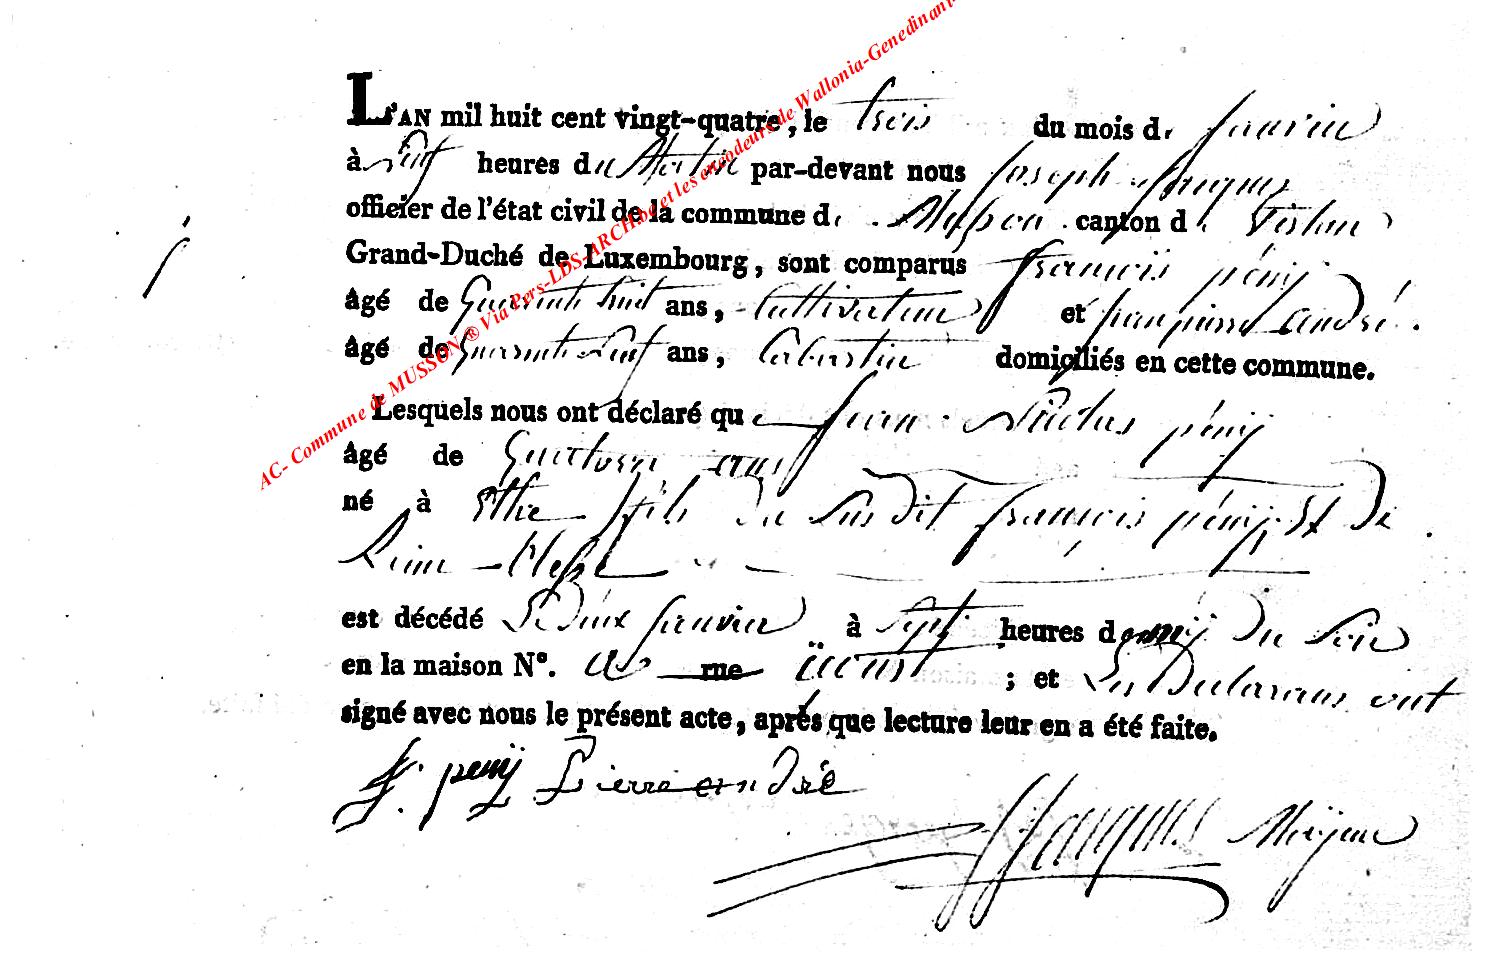 L'AN mil huit cent vingt-quatre, le trois du mois de janvier
à neuf heures du Matin par-devant nous joseph jacques
officier de l'état civil de la commune de Musson canton de Virton
Grand-Duché de Luxembourg, sont comparus françois pénij
âgé de Quarante huit ans, Cultivateur et jean pierre andré
âgé de Quarante neuf ans, domiciliés en cette commune.
Lesquels nous ont déclaré que jean Nicolas pénij
âgé de Quatorze ans
né à Ethe fils du Susdit françois pénij Et de
est décédé Le Deux janvier à Sept heures demij du Soir
en la maison N°. rue ; et Les Déclarans ont
signé avec nous le présent acte, après que lecture leur en a été faite.
f. penij Pierre andré
Jacques
AC- Commune de MUSSON ® Via Pers-LDS-ARCH.be et les encodeurs de Wallonia-Genedinant